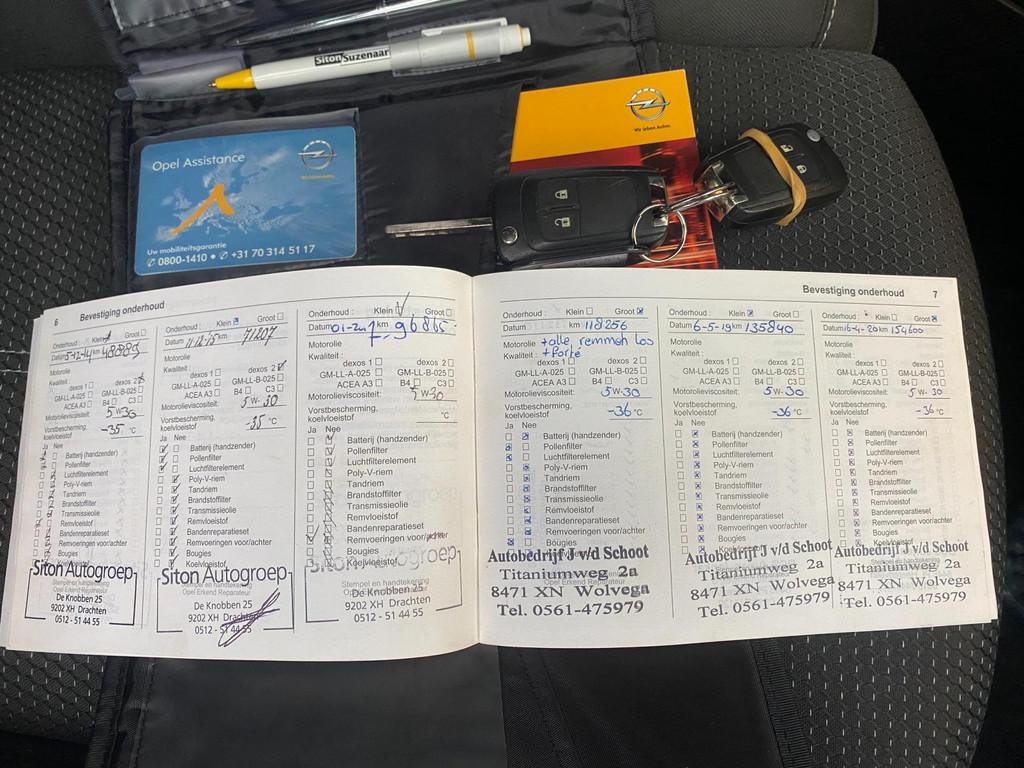 SitonSuzenaar
Opel Assistance
Uw mobiliteitsgarantie
0800-1410 • +31 70 314 51 17
Wir leben Autos.
6 Bevestiging onderhoud
Onderhoud: Klein Groot
Datum 5-12-14 km 48889
Motorolie
Kwaliteit:
dexos 1 dexos 2
GM-LL-A-025 GM-LL-B-025
ACEA A3 B4 C3
Motorolieviscositeit: 5W-30
Vorstbescherming,
koelvloeistof -35 °C
Ja Nee
Batterij (handzender)
Pollenfilter
Luchtfilterelement
Poly-V-riem
Tandriem
Brandstoffilter
Transmissieolie
Remvloeistof
Bandenreparatieset
Remvoeringen voor/achter
Bougies
Koelvloeistof
Siton Autogroep
De Knobben 25
9202 XH Drachten
0512 - 51 44 55
Onderhoud: Klein Groot
Datum 11-12-15 km 71207
Motorolie
Kwaliteit:
dexos 1 dexos 2
GM-LL-A-025 GM-LL-B-025
ACEA A3 B4 C3
Motorolieviscositeit: 5W-30
Vorstbescherming,
koelvloeistof -35 °C
Ja Nee
Batterij (handzender)
Pollenfilter
Luchtfilterelement
Poly-V-riem
Tandriem
Brandstoffilter
Transmissieolie
Remvloeistof
Bandenreparatieset
Remvoeringen voor/achter
Bougies
Koelvloeistof
Siton Autogroep
De Knobben 25
9202 XH Drachten
0512 - 51 44 55
Onderhoud: Klein Groot
Datum km 96865
Motorolie
Kwaliteit:
dexos 1 dexos 2
GM-LL-A-025 GM-LL-B-025
ACEA A3 B4 C3
Motorolieviscositeit: 5W-30
Vorstbescherming,
koelvloeistof °C
Ja Nee
Batterij (handzender)
Pollenfilter
Luchtfilterelement
Poly-V-riem
Tandriem
Brandstoffilter
Transmissieolie
Remvloeistof
Bandenreparatieset
Remvoeringen voor/achter
Bougies
Koelvloeistof
Siton Autogroep
Stempel en handtekening
Opel Erkend Reparateur
De Knobben 25
9202 XH Drachten
0512 - 51 44 55
Bevestiging onderhoud 7
Onderhoud: Klein Groot
Datum km 118256
Motorolie + alle remmen los
Kwaliteit: + Forté
dexos 1 dexos 2
GM-LL-A-025 GM-LL-B-025
ACEA A3 B4 C3
Motorolieviscositeit: 5W-30
Vorstbescherming,
koelvloeistof -36 °C
Ja Nee
Batterij (handzender)
Pollenfilter
Luchtfilterelement
Poly-V-riem
Tandriem
Brandstoffilter
Transmissieolie
Remvloeistof
Bandenreparatieset
Remvoeringen voor/achter
Bougies
Autobedrijf J v/d Schoot
Titaniumweg 2a
8471 XN Wolvega
Tel. 0561-475979
Onderhoud: Klein Groot
Datum 6-5-19 km 135840
Motorolie
Kwaliteit:
dexos 1 dexos 2
GM-LL-A-025 GM-LL-B-025
ACEA A3 B4 C3
Motorolieviscositeit: 5W-30
Vorstbescherming,
koelvloeistof -36 °C
Ja Nee
Batterij (handzender)
Pollenfilter
Luchtfilterelement
Poly-V-riem
Tandriem
Brandstoffilter
Transmissieolie
Remvloeistof
Bandenreparatieset
Remvoeringen voor/achter
Bougies
Autobedrijf J v/d Schoot
Titaniumweg 2a
8471 XN Wolvega
Tel. 0561-475979
Onderhoud: Klein Groot
Datum 16-4-20 km 154600
Motorolie
Kwaliteit:
dexos 1 dexos 2
GM-LL-A-025 GM-LL-B-025
ACEA A3 B4 C3
Motorolieviscositeit: 5W-30
Vorstbescherming,
koelvloeistof -36 °C
Ja Nee
Batterij (handzender)
Pollenfilter
Luchtfilterelement
Poly-V-riem
Tandriem
Brandstoffilter
Transmissieolie
Remvloeistof
Bandenreparatieset
Remvoeringen voor/achter
Bougies
Autobedrijf J v/d Schoot
Titaniumweg 2a
8471 XN Wolvega
Tel. 0561-475979